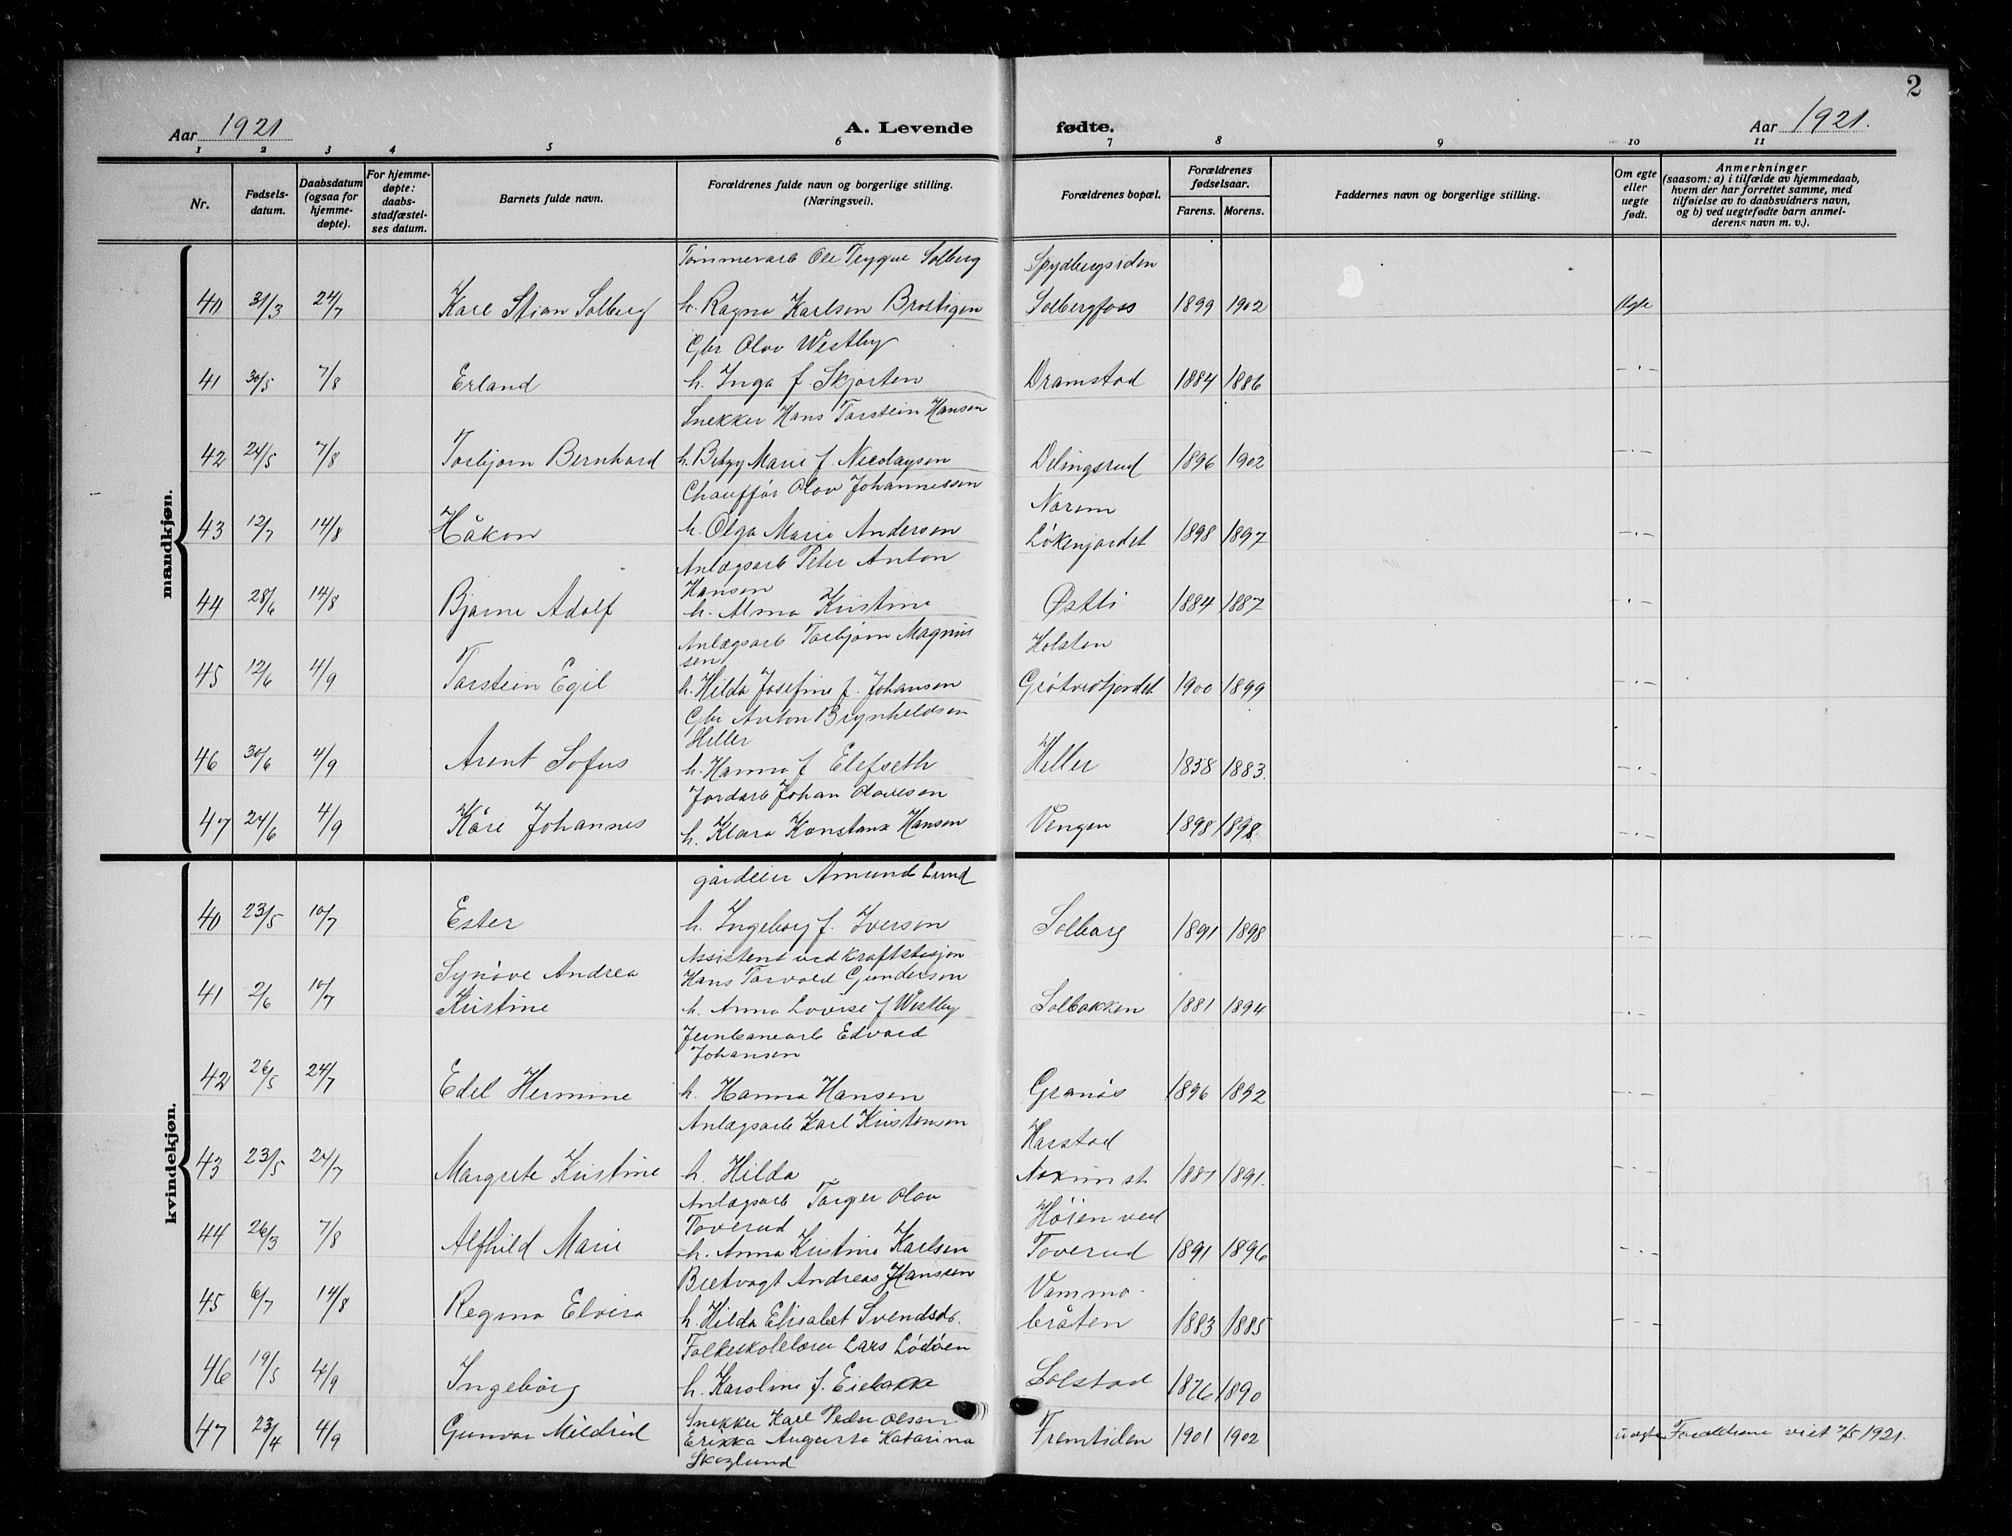 2
Aar 1921
A. Levende fødte.
Aar 1921.
1 2 3 4 5 6 7 8 9 10 11
Nr.
Fødsels-
datum.
Daabsdatum
(ogsaa for
hjemme-
døpte).
For hjemme-
døpte:
daabs-
stadfæstel-
ses datum.
Barnets fulde navn.
Forældrenes fulde navn og borgerlige stilling.
(Næringsvei).
Forældrenes bopæl.
Forældrenes
fødselsaar.
Farens. Morens.
Faddernes navn og borgerlige stilling.
Om egte
eller
uegte
født.
Anmerkninger
(saasom: a) i tilfælde av hjemmedaab,
hvem der har forrettet samme, med
tilføielse av to daabsvidners navn,
og b) ved uegtefødte barn anmel-
derens navn m. v.).
mandkjøn.
Tømmerarb Ole Trygve Solberg Spydbergsiden
40 31/3 24/7 Karl Stian Solberg h. Ragna Karlsen Brostigen Solbergfoss 1899 1902 Egte
Gbr Olav Westby
41 30/5 7/8 Erland h. Inga f. Skjorten Dramstad 1884 1886 - . -
Snekker Hans Torstein Hansen
42 24/5 7/8 Torbjørn Bernhard h. Betzy Marie f. Nicolaysen Delingsrud 1896 1902 - . -
Chauffør Olav Johannessen Norem
43 12/7 14/8 Håkon h. Olga Marie Andersen Løkenjordet 1898 1897 - . -
Anlægsarb Peter Anton
Hansen
44 28/6 14/8 Bjarne Adolf h. Alma Kristine Østli 1884 1887 - . -
Anlægsarb Torbjørn Magnus
sen Holsten
45 12/6 4/9 Torstein Egil h. Hilda Josefine f. Johansen Grøtvedtjordet 1900 1899 - . -
Gbr Anton Brynheldsen
Heller
46 30/6 4/9 Arent Sofus h. Hanna f Elefseth Heller 1858 1883. - . -
Jordarb Johan Olavesen
47 24/6 4/9 Kåre Johannes h. Klara Konstanse Hansen Vengen 1898 1898. - . -
kvindekjøn.
gårdeier Amund Lund
40 23/5 10/7 Ester h. Ingeborg f. Iversen Solberg 1891 1898 - . -
Assistent ved kraftstasjon
Synøve Andrea Hans Torvald Gundersen
41 2/6 10/7 Kristine h. Anna Lovise f Westby Solbakken 1881 1894 - . -
Jernbanearb Edvard
Johansen
42 26/5 24/7 Edel Hermine h. Hanna Hansen Granås 1896 1892 - . -
Anlægsarb Karl Kristensen Harstad
43 23/5 24/7 Margrete Kristine h. Hilda 1887 1891. - . -
Anlægsarb Torger Olav
Toverud Høien ved
44 26/3 7/8 Alfhild Marie h. Anna Kristine Karlsen Toverud 1891 1896 - . -
Andreas Hansen Vammo-
45 6/7 14/8 Regina Elvira h Hilda Elisabet Svendsdr. bråten 1883 1885 - - -
Folkeskolelærer Lars Lødøen
46 19/5 4/9 Ingebørg h. Karoline f. Eielakke Solstad 1876 1890
47 23/4 4/9 Gunvor Mildrid Snekker Karl Peder Olsen
Erikka Augusta Katarina Fremtiden 1901 1902 uegte Forældrene viet 7/5 1921.
Skoglund